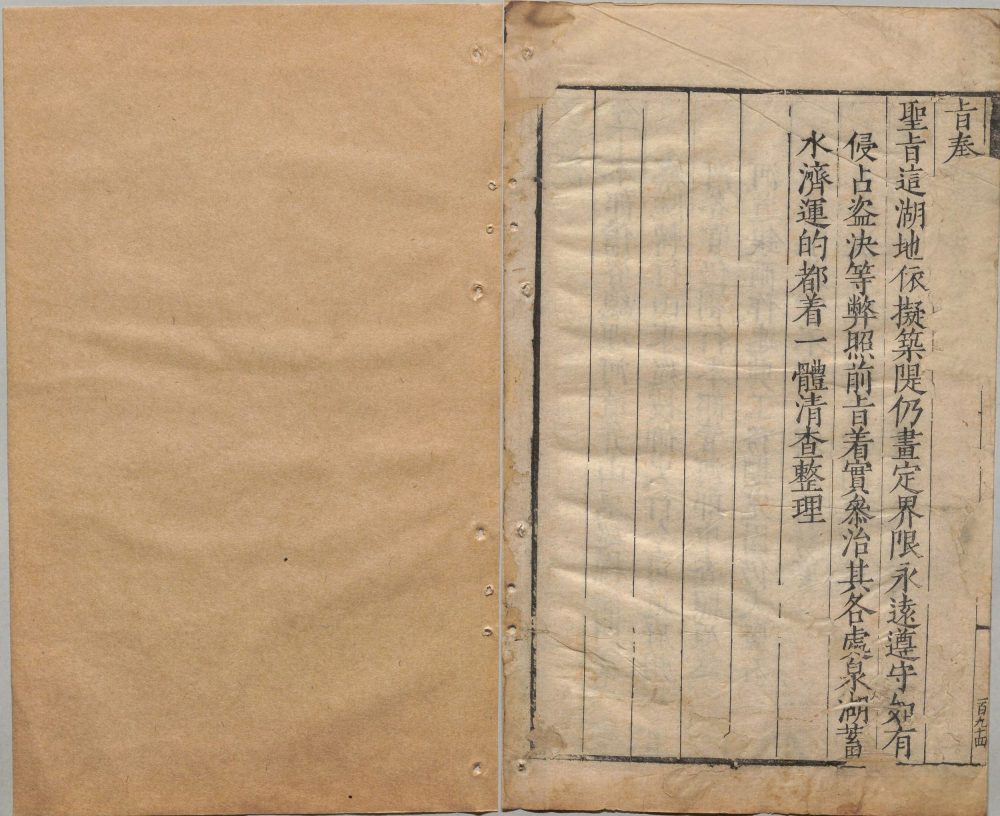 旨奉
聖旨這湖地依擬築隄仍畫定界限永遠遵守如有
侵占盜決等弊照前旨着實叅治其各處泉湖蓄
水濟運的都着一體清查整理
一百九十四